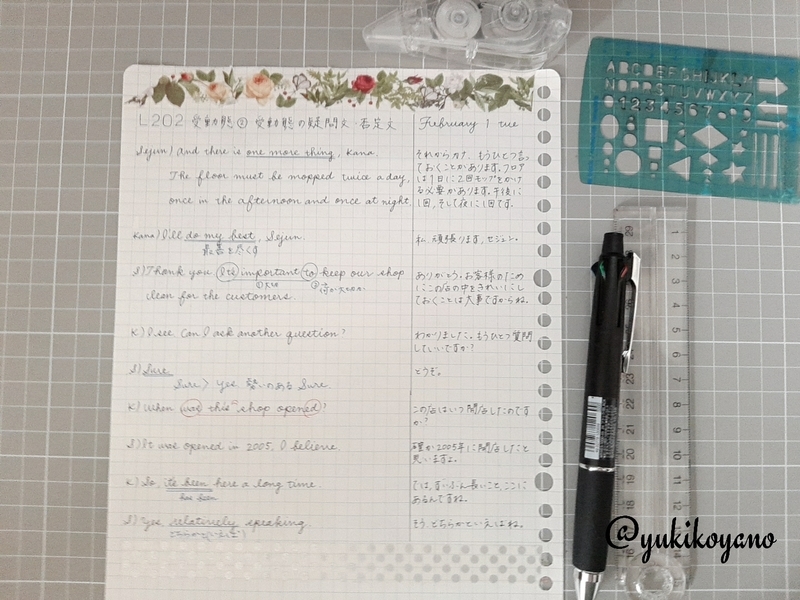 L202 受動態② 受動態の疑問文・否定文
February 1 tue
Sejun) And there is one more thing, Kana.
The floor must be mopped twice a day,
once in the afternoon and once at night.
それからカナ、もうひとつ言っ
ておくことがあります。フロア
は1日に2回モップをかけ
る必要があります。午後に
1回、そして夜に1回です。
Kana) I'll do my best, Sejun.
最善を尽くす
私、頑張ります、セジュン。
S) Thank you. It's important to keep our shop
clean for the customers.
ありがとう。お客様のため
にこの店の中をきれいにし
ておくことは大事ですからね。
K) I see. Can I ask another question?
わかりました。もうひとつ質問
していいですか?
S) Sure.
Sure > yes. 勢いのある Sure.
どうぞ。
K) When was this shop opened?
この店はいつ開店したのです
か?
S) It was opened in 2005, I believe.
確か2005年に開店したと
思いますよ。
K) So, it's been here a long time.
has been
では、ずいぶん長いこと、ここに
あるんですね。
S) Yes, relatively speaking.
そう、どちらかといえばね。
ABCDEFGHIJKLM
NOPQRSTUVWXYZ
@yukikoyano